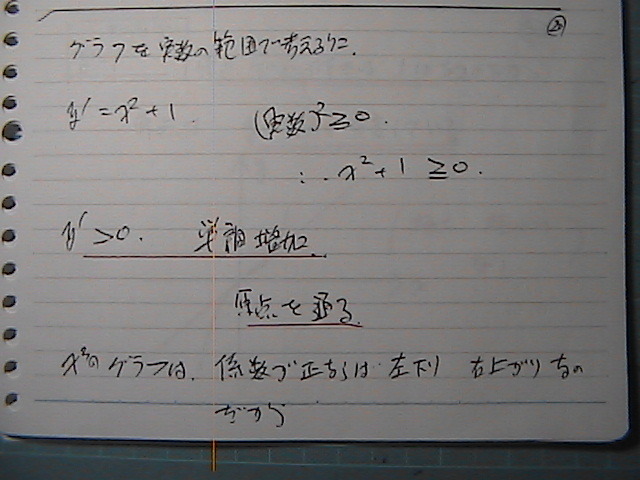 ②
グラフを実数の範囲で考えるに.
y' = x² + 1. (実数)² ≧ 0.
∴ x² + 1 ≧ 0.
y' > 0. 単調増加.
原点を通る.
x³のグラフは. 係数が正ならば 左下り 右上がりなの
だから